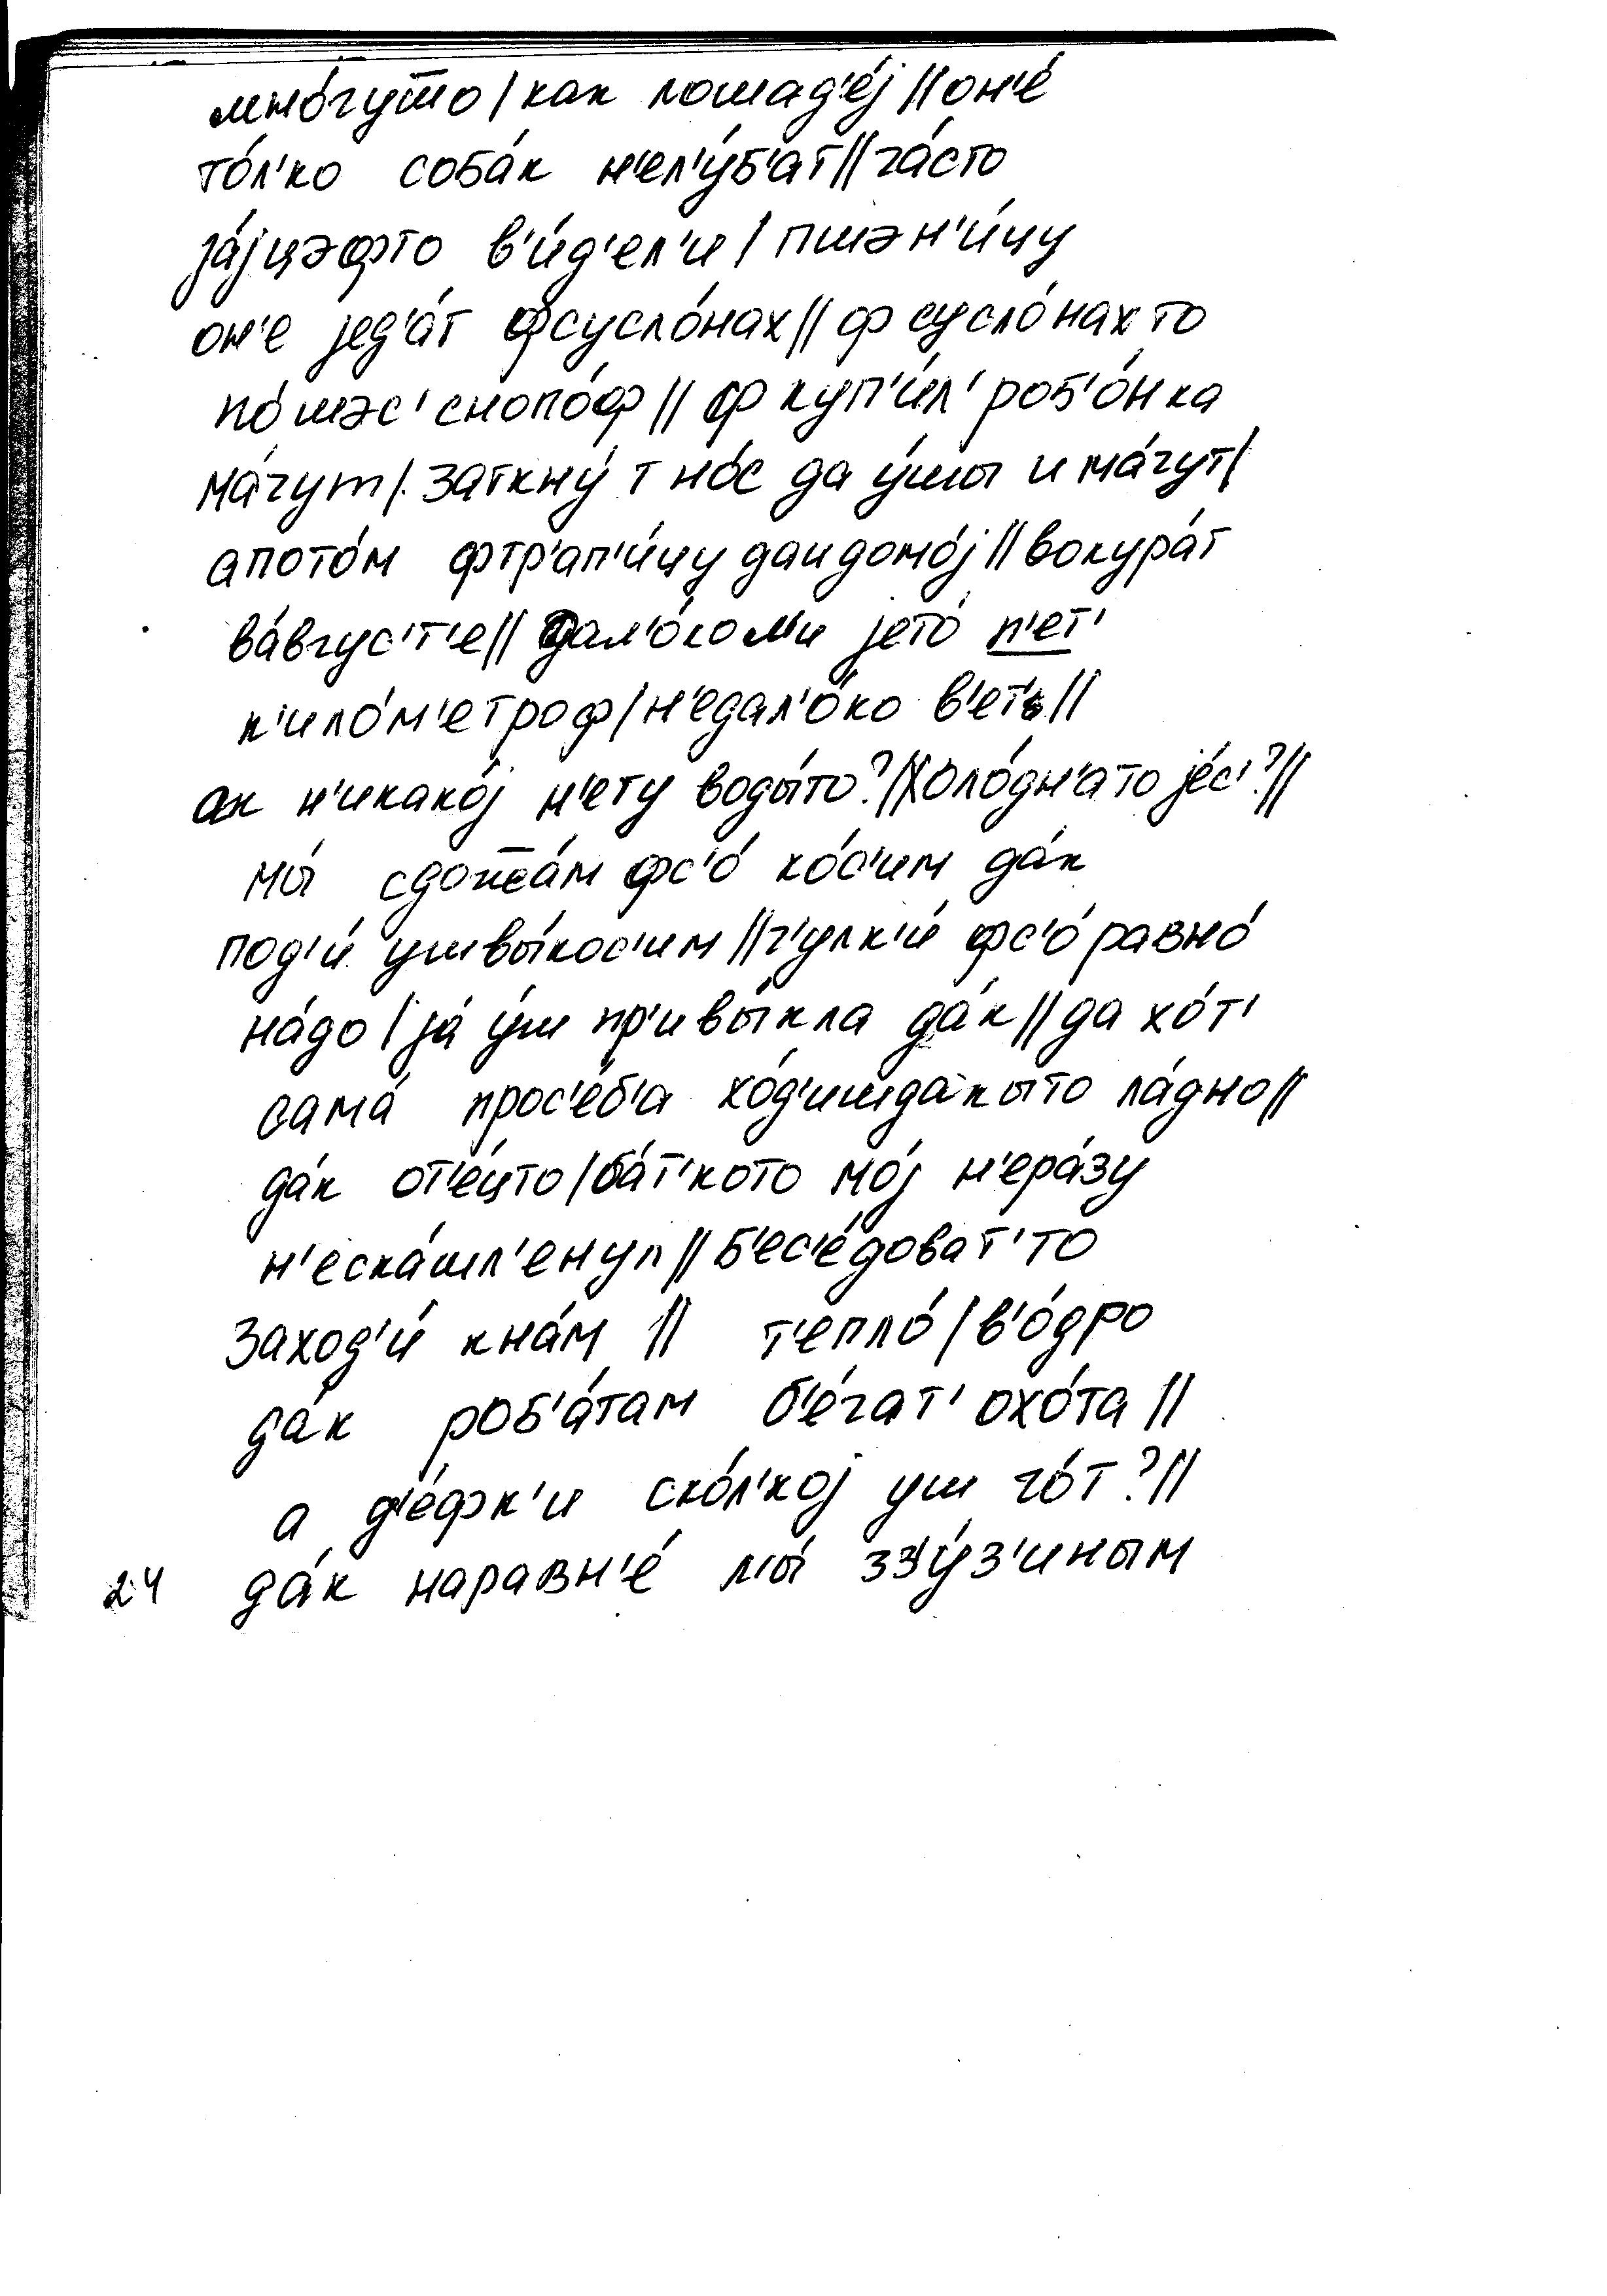 мно́гуто / как лошад'е́j // он'е́
то́л'ко соба́к н'ел'у́б'ат // ча́сто
jа́jцэфто в'и́д'ел'и / пшэн'и́цу
он'е jед'а́т фсусло́нах // ф сусло́нахто
по́ шэс' снопо́ф // ф куп'и́л' роб'о́нка
ма́чут /. заткну́т но́с да у́шы и ма́чут /
апото́м фтр'ап'и́цу даидомо́j // вокура́т
ва́вгус'т'е // дал'о́кол'и jето́ п'ет'
к'ило́м'етроф / н'едал'о́ко в'ет' //
ак н'икако́j н'ету воды́то? // холо́дн'ато jе́с'? //
мы́ сдожжа́м фс'о́ ко́с'им да́к
под'и́ ушвы́кос'им // ч'улк'и́ фс'о́ равно́
на́до / jа́ у́ш пр'ивы́кла да́к // да хо́т'
сама́ прос'е́б'а хо́д'ишдакыто ла́дно //
да́к от'е́цто / ба́т'кото мо́j н'ера́зу
н'еска́шл'енул // б'ес'е́доват'то
заход'и́ кна́м // т'епло́ / в'о́дро
да́к роб'а́там б'е́гат' охо́та //
а д'е́фк'и ско́л'коj уш го́т? //
24 да́к наравн'е́ мы́ ззу́з'иным